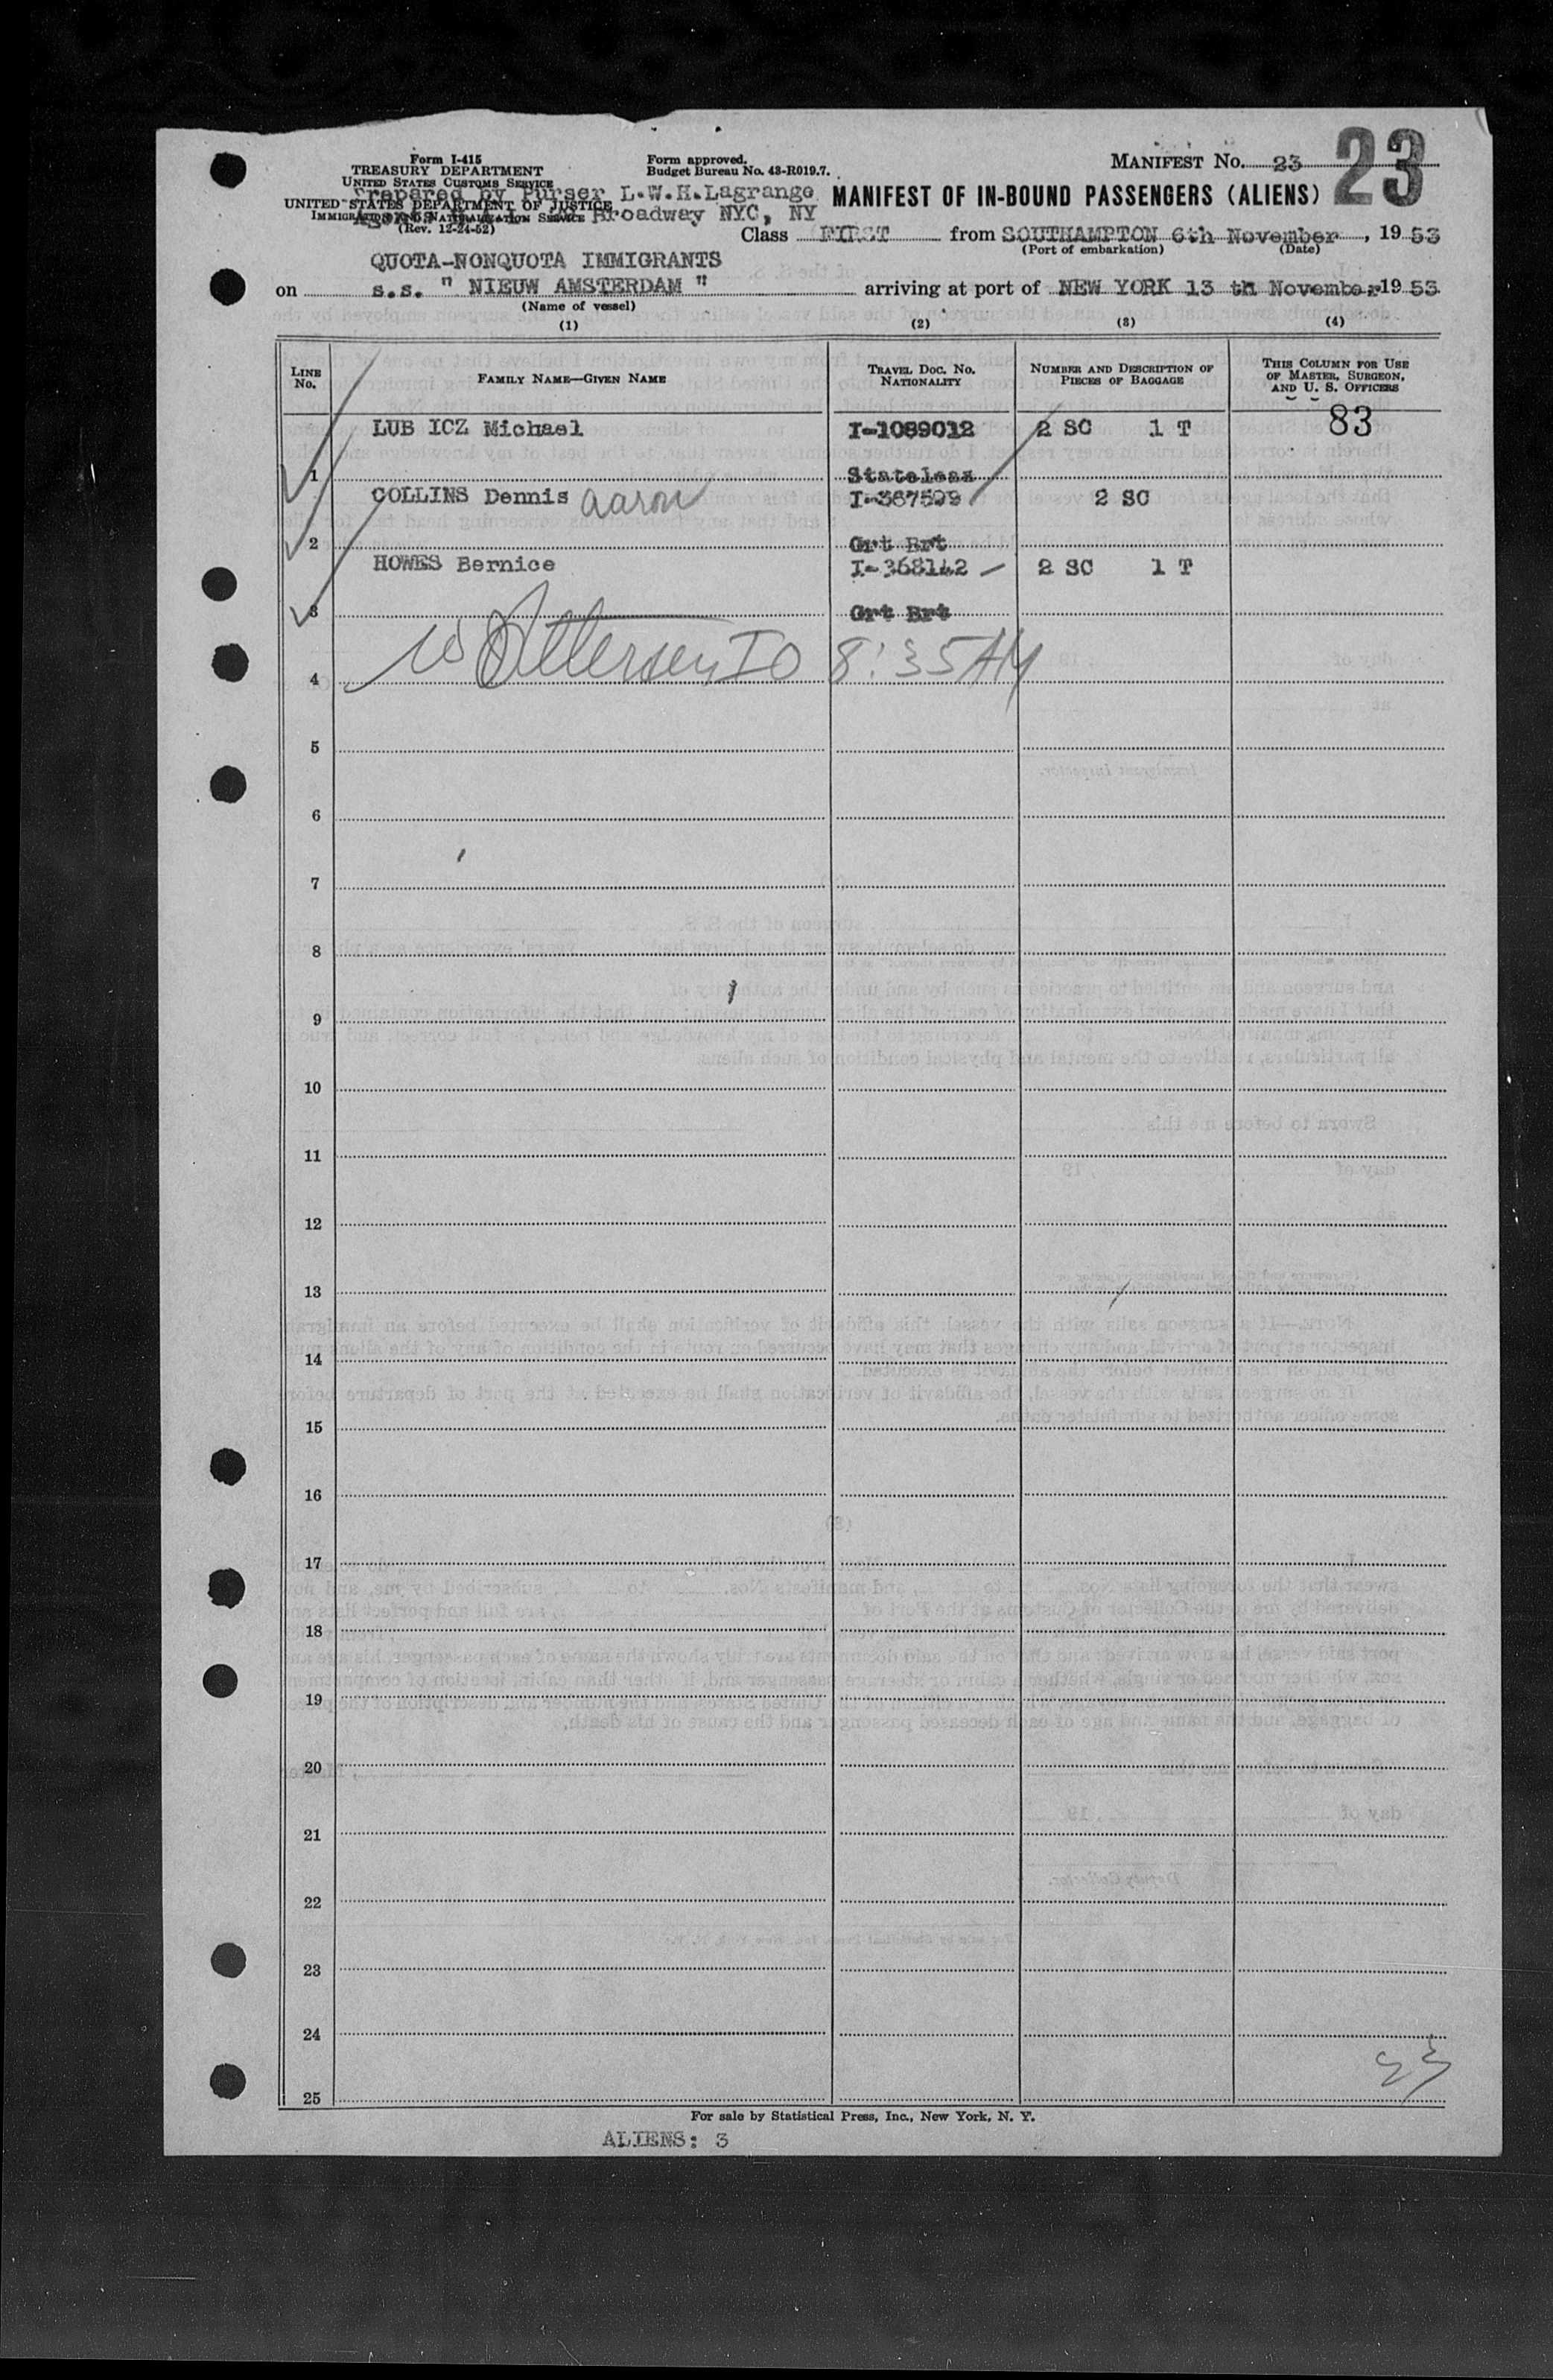 Form I-415
TREASURY DEPARTMENT
UNITED STATES CUSTOMS SERVICE
UNITED STATES DEPARTMENT OF JUSTICE
IMMIGRATION AND NATURALIZATION SERVICE
(Rev. 12-24-52)
Form approved.
Budget Bureau No. 43-R019.7.
Prepared by Purser L.W.H.Lagrange
Broadway NYC, NY
MANIFEST NO. 23
23
MANIFEST OF IN-BOUND PASSENGERS (ALIENS)
Class FIRST from SOUTHAMPTON 6th November, 19 53
(Port of embarkation) (Date)
QUOTA-NONQUOTA IMMIGRANTS
on s.s. " NIEUW AMSTERDAM " arriving at port of NEW YORK 13 th November 19 53
(Name of vessel)
(1) (2) (3) (4)
LINE NO. FAMILY NAME—GIVEN NAME TRAVEL DOC. NO. NATIONALITY NUMBER AND DESCRIPTION OF PIECES OF BAGGAGE THIS COLUMN FOR USE OF MASTER, SURGEON, AND U. S. OFFICERS
83
LUB ICZ Michael I-1089012 2 SC 1 T
1 Stateless
COLLINS Dennis Aaron I-367599 2 SC
2 Grt Brt
HOWES Bernice I-368142 2 SC 1 T
3 Grt Brt
4 IO 8:35AM
5
6
7
8
9
10
11
12
13
14
15
16
17
18
19
20
21
22
23
24
25
For sale by Statistical Press, Inc., New York, N. Y.
ALIENS: 3